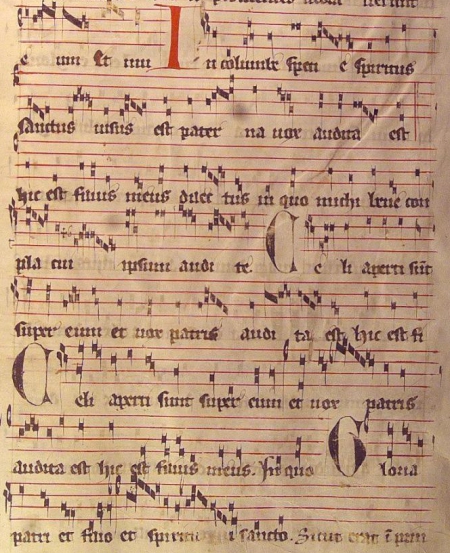 e um Et nu In columbe speci e spiritus
sanctus visus est pater na vox audita est
hic est filius meus dilec tus in quo michi bene con
pla cui ipsum audi te. Ce li aperti sunt
super eum et vox patris audi ta est hic est fi
Celi aperti sunt super eum et vox patris
audita est hic est filius meus. In quo Gloria
patri et filio et spiritu i sancto. Sicut erat i prin